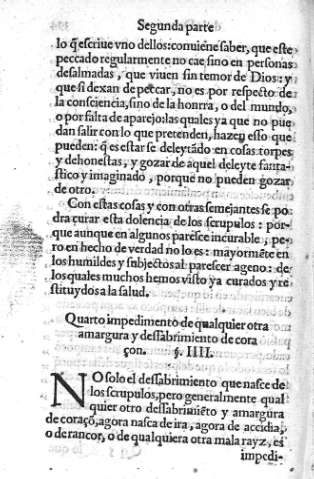 Segunda parte
lo q̃ escriue vno dellos: conuiẽne saber, que este
peccado regularmente no cae sino en personas
desalmadas, que viuen sin temor de Dios: y
que si dexan de peccar, no es por respecto de
la consciencia, sino de la honrra, o del mundo,
o por falta de aparejo: las quales ya que no pue
dan salir con lo que pretenden, hazen esso que
pueden: q̃ es estar se deleytãdo en cosas torpes
y dehonestas, y gozar de aquel deleyte fanta-
stico y imaginado, porque no pueden gozar
de otro.
Con estas cosas y con otras semejantes se po
dra curar esta dolencia de los scrupulos: por-
que aunque en algunos paresce incurable, pe-
ro en hecho de verdad no lo es: mayormẽte en
los humildes y subjectos al parescer ageno: de
los quales muchos hemos visto ya curados y re
stituydos a la salud.
Quarto impedimento de qualquier otra
amargura y dessabrimiento de cora
çon. §. IIII.
NO solo el dessabrimiento que nasce de
los scrupulos, pero generalmente qual
quier otro dessabrimiẽto y amargura
de coraçõ, agora nasca de ira, agora de accidia,
o de rancor, o de qualquiera otra mala rayz, es
impedi-